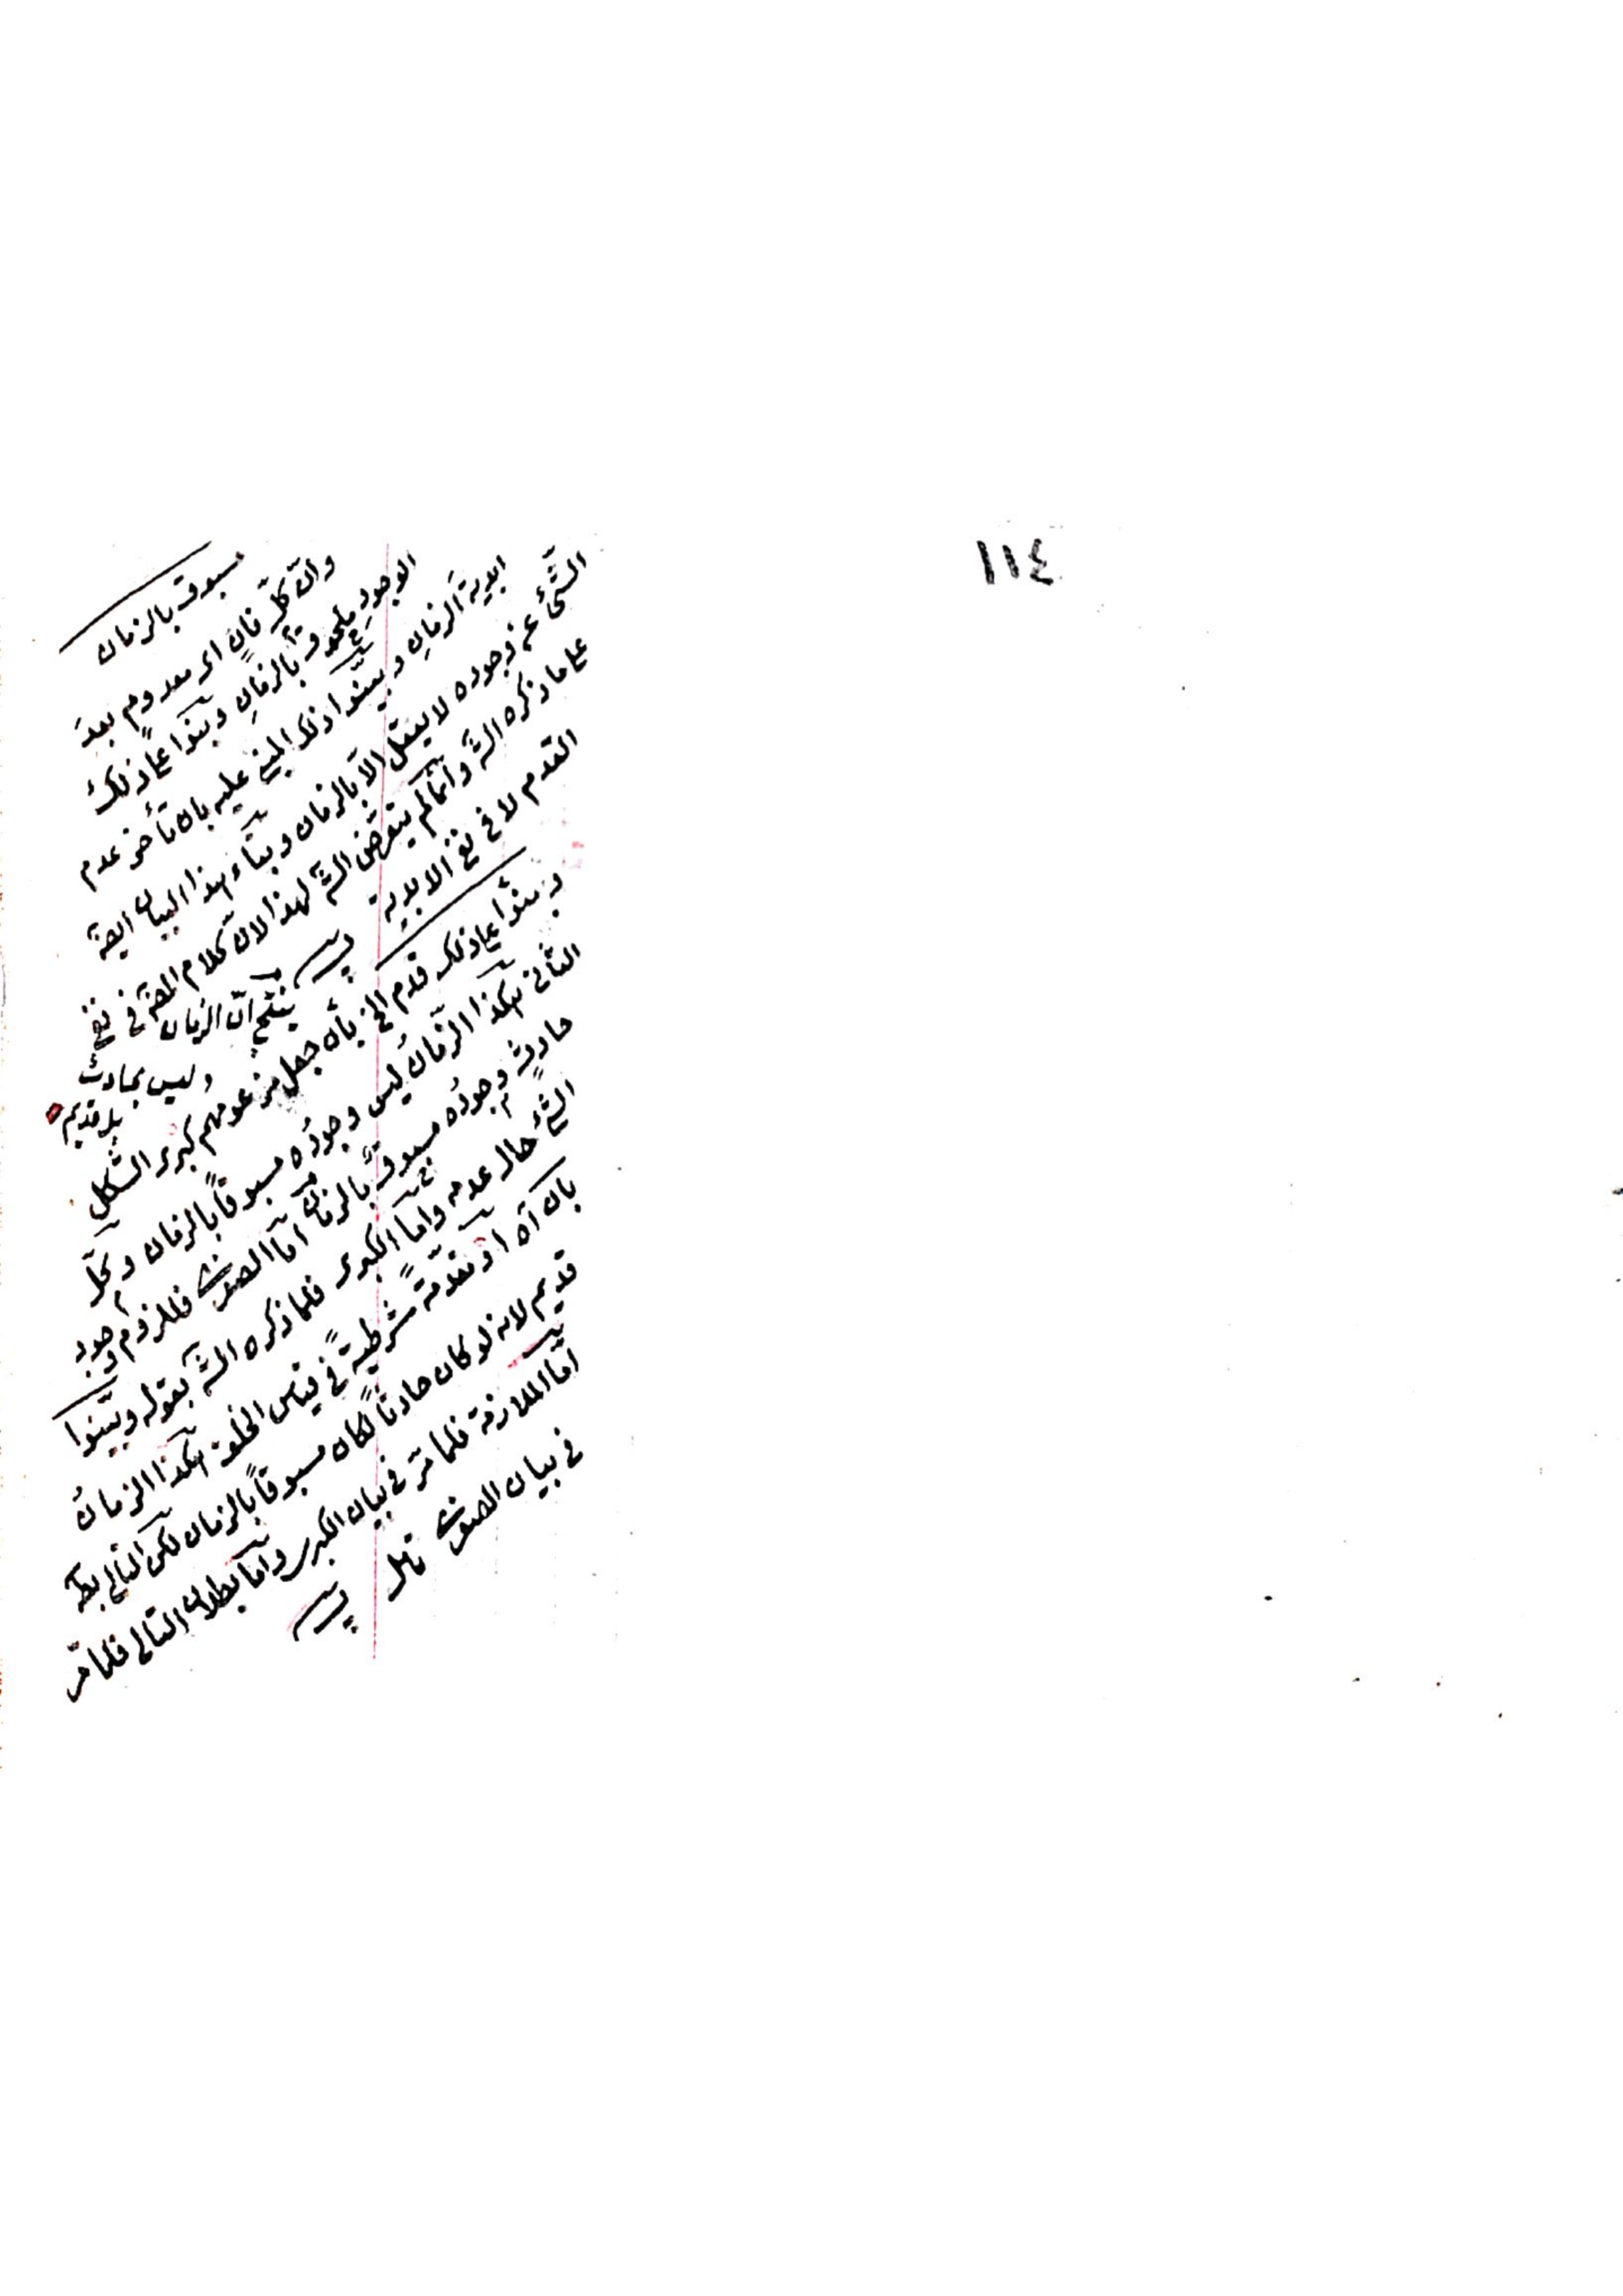 ١١٤
مسبوق بالزمان
وانّ كلّ فانٍ اى معدومٍ بعدَ
الوجودِ ملحوق بالزمانِ وبنوا على ذلك
ابدية الزمانِ وبيّنوا ذلك المبنى عليه بان تأخر عدم
الشئ عن وجوده لا يعقل الا بالزمان وبناء هذا البيان ايضا
على ما ذكره الشّ وانما لم يتعرض الشّ لهذا لان كلام المصّ فى نفى
القدم لا فى نفى الابدية
وبنوا على ذلك قدم الخ بان جعل مزعومهم كبرى الشكل
الثانى هكذا الزمانُ ليس وجودُه مسبوقاً بالزمان وكلّ
حادثٍ وجودُه مسبوق بالزمان امّا الصغرى فللزوم وجود
الشئ حال عدمه وامّا الكبرى فلما ذكره الشّ بقوله وبيّنوا
بان آه او مقدمةً شرطيةً فى قياس الخلف هكذا الزمانُ
قديم لانه لو كان حادثا لكان مسبوقاً بالزمان لكن التالى بط
امّا الملازمة فلما مرّ فى بيان الكبرى وامّا بطلان التالى فلما مرّ
فى بيان الصغرى
ينتج انّ الزمان
وليس بحادث
بل قديم